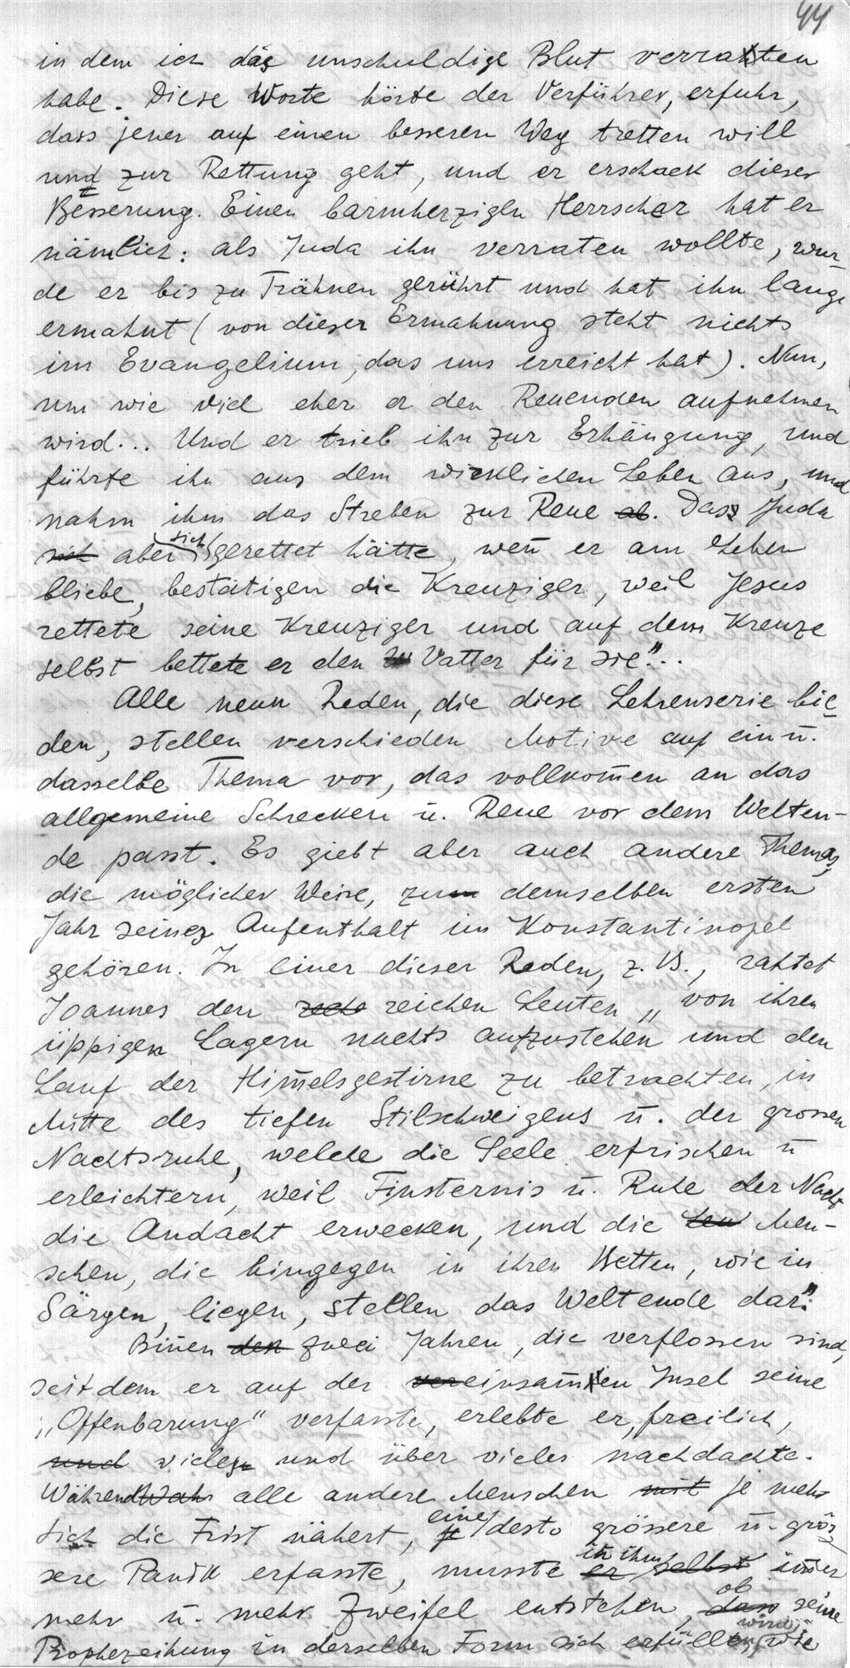 44
in dem ich das unschuldige Blut verraten
habe. Diese Worte hörte der Verführer, erfuhr,
dass jener auf einen besseren Weg tretten will
und zur Rettung geht, und er erschack dieser
Besserung. Einen barmherzigen Herrscher hat er
nämlich: als Juda ihn verraten wollte, wur-
de er bis zu Trähnen gerührt und hat ihn lange
ermahnt (von dieser Ermahnung steht nichts
im Evangelium, das uns erreicht hat). Nun,
um wie viel eher er den Reuenden aufnehmen
wird... Und er trieb ihn zur Erhängung, und
führte ihn aus dem wirklichen Leben aus, und
nahm ihm das Streben zur Reue ab. Dass Juda
sich aber sich gerettet hätte, weñ er am Leben
bliebe, bestätigen die Kreuziger, weil Jesus
rettete seine Kreuziger und auf dem Kreuze
selbst bettete er den Vatter für sie"...
Alle neun Reden, die diese Lehrenserie bie-
den, stellen verschieden Motive auf ein ū.
dasselbe Thema vor, das vollkom̄en an das
allgemeine Schrecken ū. Reue vor dem Welten-
de passt. Es giebt aber auch andere Themas,
die möglicher Weise, zum demselben ersten
Jahr seines Aufenthalt im Konstantinopel
gehören. In einer dieser Reden, z. B., rahtet
Joannes den reichen Leuten „von ihren
üppigen Lagern nachts aufzustehen und den
Lauf der Him̄elsgestirne zu betrachten, in
Mitte des tiefen Stilschweigens ū. der grossen
Nachtsruhe, welche die Seele erfrischen ū
erleichtern, weil Finsternis ū. Ruhe der Nacht
die Andacht erwecken, und die Men-
schen, die hingegen in ihren Betten, wie in
Särgen, liegen, stellen das Weltende dar".
Biñen den zwei Jahren, die verflossen sind,
seit dem er auf der einsamen Insel seine
„Offenbarung" verfasste, erlebte er, freilich,
und vieles und über vieles nachdachte.
Während alle andere Menschen mit je mehr
sich die Frist nähert, eine desto grössere ū. grös-
sere Panik erfasste, musste er selbst in ihm im̄er
mehr ū. mehr Zweifel entstehen, dass ob seine
Prophezeihung in derselben Form sich erfüllen wird, wie